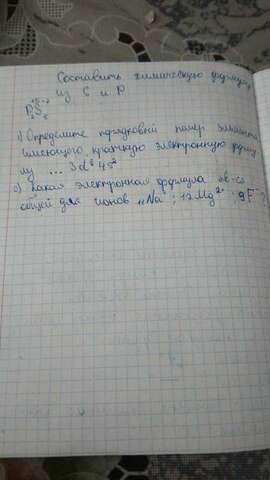 Составить химическую формулу
из S и P
+5 -2
P₂S₅
1) Определите порядковый номер элемента
имеющего краткую электронную форму
лу ... 3d⁶ 4s²
2) Какая электронная формула
общей для ионов ₁₁Na⁺; 12Mg²⁺; 9F⁻